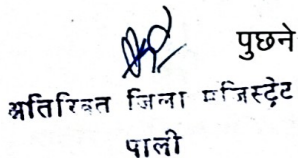 पुछने
अतिरिक्त जिला मजिस्ट्रेट
पाली